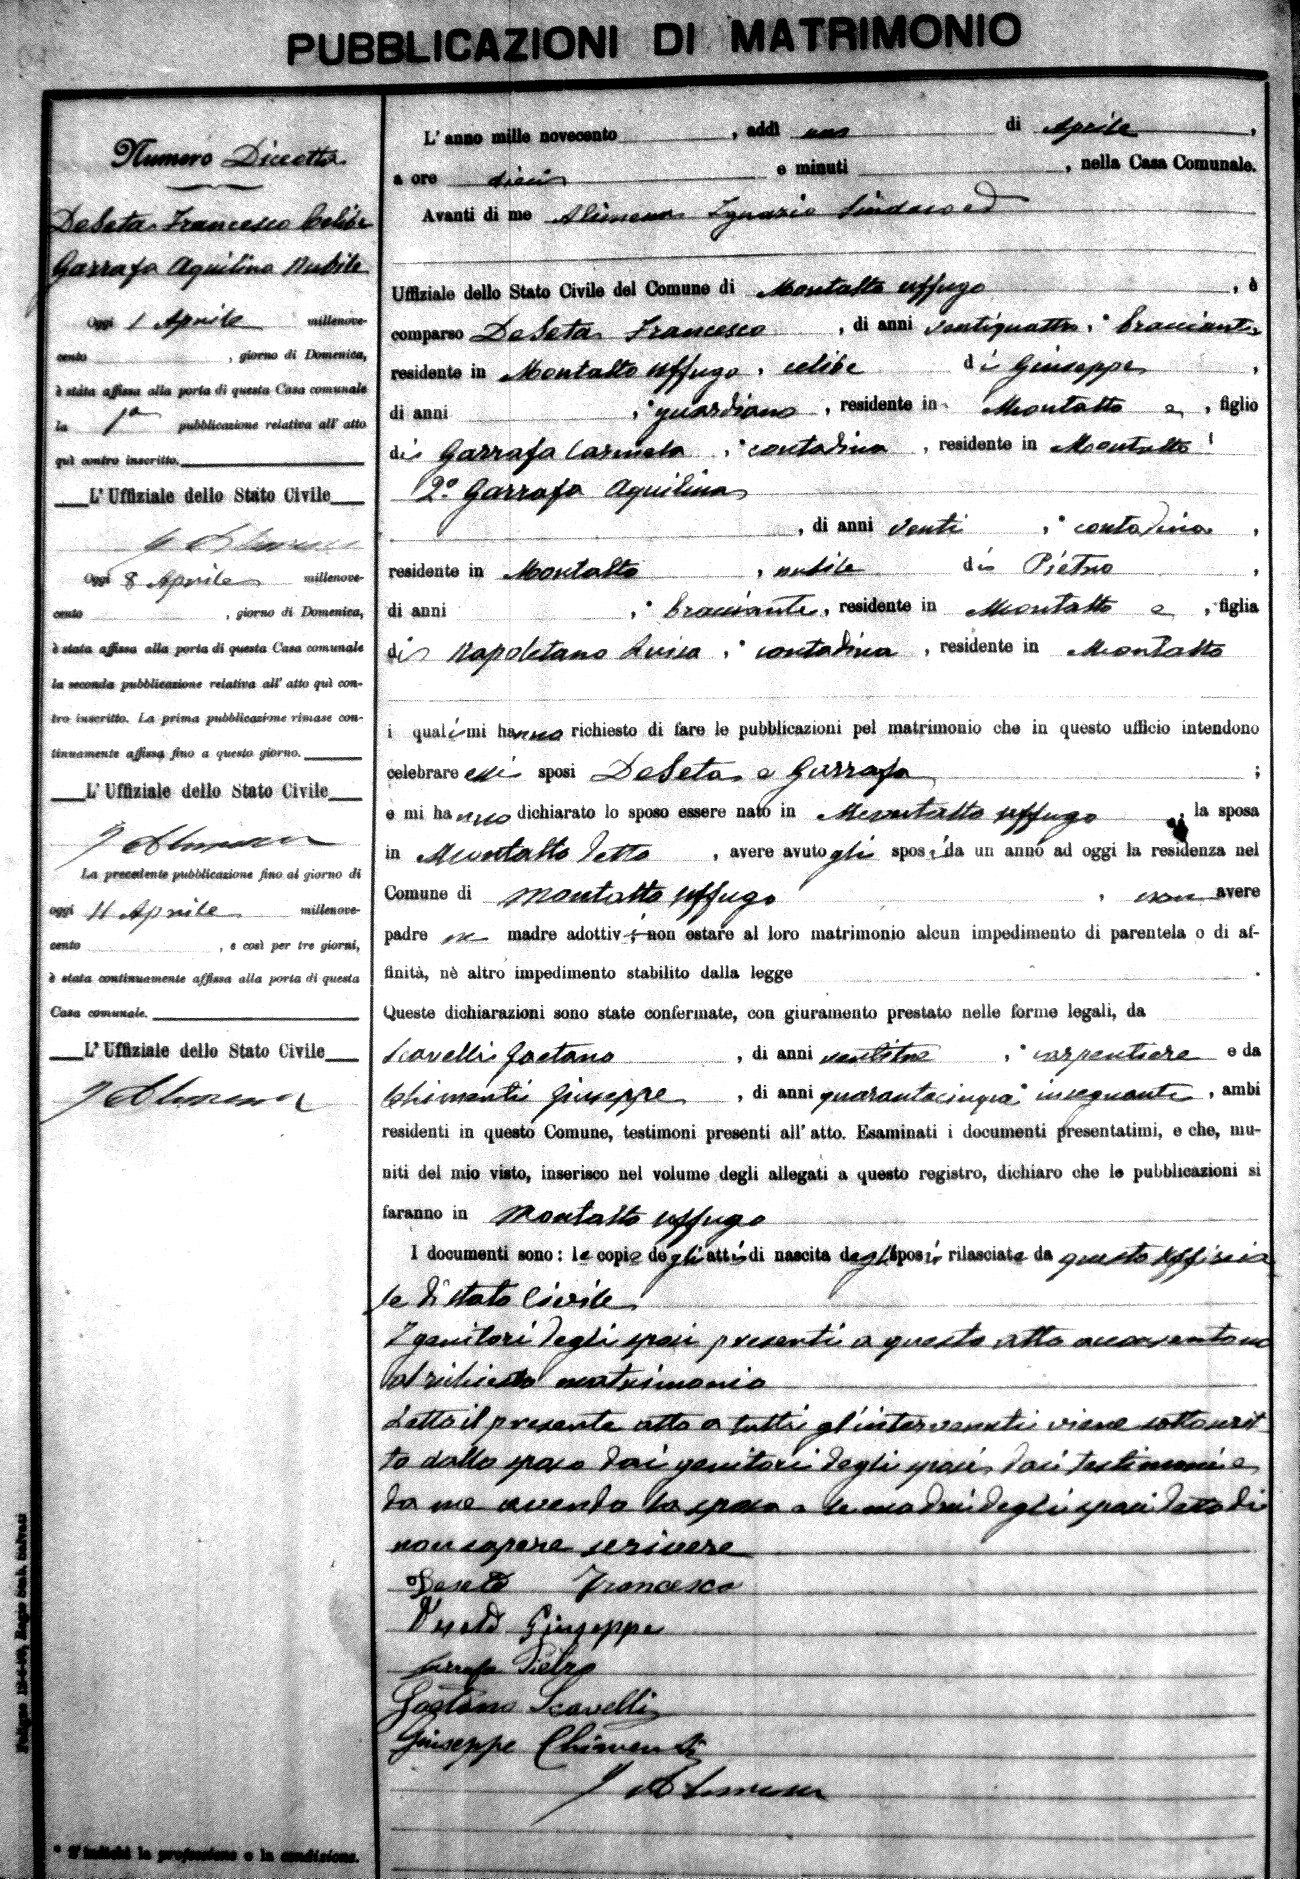 PUBBLICAZIONI DI MATRIMONIO
Numero Diciotto
DeSeta Francesco Celibe
Garrafa Aquilina Nubile
Oggi 1 Aprile millenove-
cento , giorno di Domenica,
è stata affissa alla porta di questa Casa comunale
la 1ª pubblicazione relativa all' atto
quì contro inscritto.
L' Uffiziale dello Stato Civile
Oggi 8 Aprile millenove-
cento , giorno di Domenica,
è stata affissa alla porta di questa Casa comunale
la seconda pubblicazione relativa all' atto quì con-
tro inscritto. La prima pubblicazione rimase con-
tinuamente affissa fino a questo giorno.
L' Uffiziale dello Stato Civile
La precedente pubblicazione fino al giorno di
oggi 11 Aprile millenove-
cento , e così per tre giorni,
è stata continuamente affissa alla porta di questa
Casa comunale.
L' Uffiziale dello Stato Civile
* S'indichi la professione o la condizione.
L' anno mille novecento , addì uno di Aprile ,
a ore dieci e minuti , nella Casa Comunale.
Avanti di me Alimena Ignazio Sindaco ed
Uffiziale dello Stato Civile del Comune di Montalto Uffugo , è
comparso DeSeta Francesco , di anni ventiquattro , * bracciante
residente in Montalto Uffugo , celibe di Giuseppe ,
di anni , * guardiano , residente in Montalto e , figlio
di Garrafa Carmela , * contadina , residente in Montalto
2º Garrafa Aquilina
, di anni venti , * contadina ,
residente in Montalto , nubile di Pietro ,
di anni , * bracciante , residente in Montalto e , figlia
di Napoletano Luisa , * contadina , residente in Montalto
i quali mi hanno richiesto di fare le pubblicazioni pel matrimonio che in questo ufficio intendono
celebrare essi sposi DeSeta e Garrafa ;
e mi hanno dichiarato lo sposo essere nato in Montalto Uffugo , la sposa
in Montalto detto , avere avuto gli sposi da un anno ad oggi la residenza nel
Comune di Montalto Uffugo , non avere
padre ne madre adottivi; non estare al loro matrimonio alcun impedimento di parentela o di af-
finità, nè altro impedimento stabilito dalla legge .
Queste dichiarazioni sono state confermate, con giuramento prestato nelle forme legali, da
Scavelli Gaetano , di anni ventitre , * carpentiere e da
Chimenti Giuseppe , di anni quarantacinque * insegnante , ambi
residenti in questo Comune, testimoni presenti all' atto. Esaminati i documenti presentatimi, e che, mu-
niti del mio visto, inserisco nel volume degli allegati a questo registro, dichiaro che le pubblicazioni si
faranno in Montalto Uffugo
I documenti sono: le copie degli atti di nascita degli sposi rilasciate da questo Uffizia
le di stato Civile
I genitori degli sposi presenti a questo atto acconsentono
al richiesto matrimonio
Letto il presente atto a tutti gl'intervenuti viene sottoscrit
to dallo sposo dai genitori degli sposi, dai testimoni e
da me avendo la sposa e le madri degli sposi detto di
non sapere scrivere
Deseta Francesco
Deseta Giuseppe
Garrafa Pietro
Gaetano Scavelli
Giuseppe Chimenti